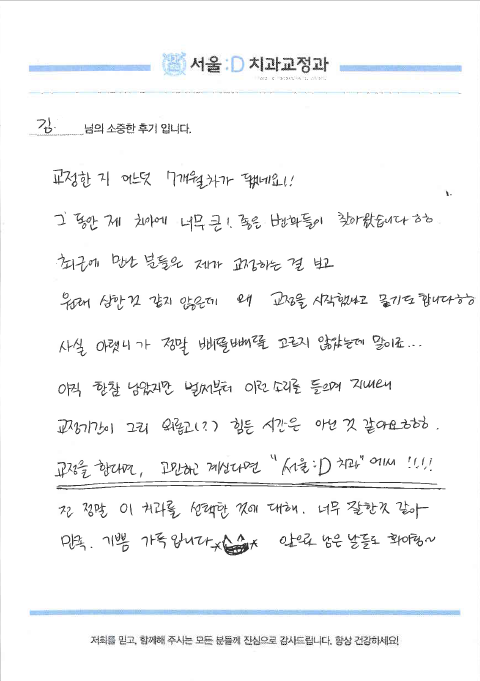 서울:D 치과교정과
김 님의 소중한 후기 입니다.
교정한 지 어느덧 7개월차가 됐네요!!
그 동안 제 치아에 너무 큰! 좋은 변화들이 찾아왔습니다 ㅎㅎ
최근에 만난 분들은 제가 교정하는 걸 보고
원래 심한것 같지 않은데 왜 교정을 시작했냐고 묻기도 합니다ㅎㅎ
사실 아랫니가 정말 삐뚤빼뚤 고르지 않았는데 말이죠...
아직 한참 남았지만 벌써부터 이런 소리를 들으며 지내니
교정기간이 그리 외롭고(?) 힘든 시간은 아닌 것 같아요ㅎㅎㅎ.
교정을 한다면, 고민하고 계신다면 "서울:D 치과"에서 !!!!
전 정말 이 치과를 선택한 것에 대해. 너무 잘한것 같아
만족. 기쁨 가득입니다 앞으로 남은 날들도 화이팅~
저희를 믿고, 함께해 주시는 모든 분들께 진심으로 감사드립니다. 항상 건강하세요!